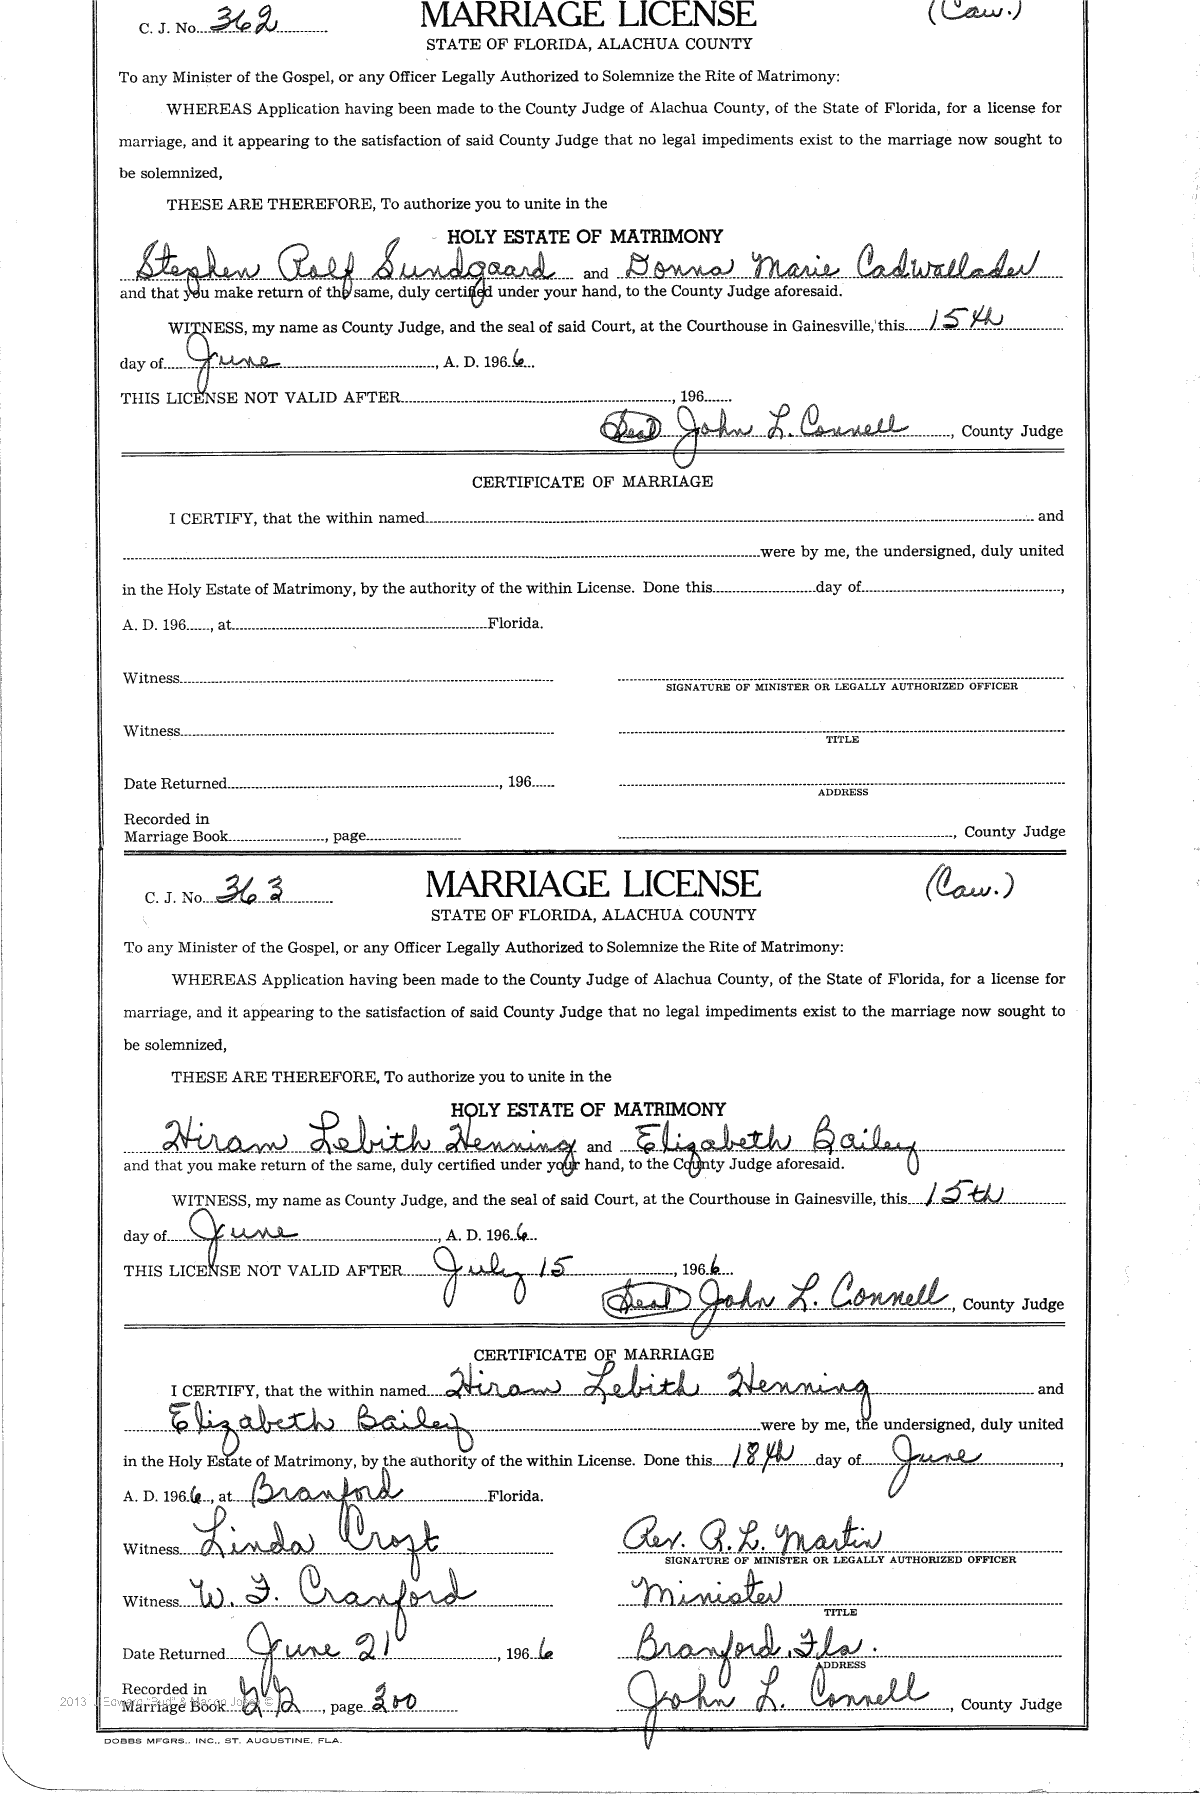 C. J. No. 362 MARRIAGE LICENSE (Caw.)
STATE OF FLORIDA, ALACHUA COUNTY
To any Minister of the Gospel, or any Officer Legally Authorized to Solemnize the Rite of Matrimony:
WHEREAS Application having been made to the County Judge of Alachua County, of the State of Florida, for a license for
marriage, and it appearing to the satisfaction of said County Judge that no legal impediments exist to the marriage now sought to
be solemnized,
THESE ARE THEREFORE, To authorize you to unite in the
HOLY ESTATE OF MATRIMONY
Stephen Rolf Sundgaard and Donna Marie Cadwallader
and that you make return of the same, duly certified under your hand, to the County Judge aforesaid.
WITNESS, my name as County Judge, and the seal of said Court, at the Courthouse in Gainesville, this 15th
day of June, A. D. 1966
THIS LICENSE NOT VALID AFTER, 196
(Seal) John L. Connell, County Judge
CERTIFICATE OF MARRIAGE
I CERTIFY, that the within named and
were by me, the undersigned, duly united
in the Holy Estate of Matrimony, by the authority of the within License. Done this day of ,
A. D. 196 , at Florida.
Witness
SIGNATURE OF MINISTER OR LEGALLY AUTHORIZED OFFICER
Witness
TITLE
Date Returned , 196
ADDRESS
Recorded in
Marriage Book , page , County Judge
C. J. No. 363 MARRIAGE LICENSE (Caw.)
STATE OF FLORIDA, ALACHUA COUNTY
To any Minister of the Gospel, or any Officer Legally Authorized to Solemnize the Rite of Matrimony:
WHEREAS Application having been made to the County Judge of Alachua County, of the State of Florida, for a license for
marriage, and it appearing to the satisfaction of said County Judge that no legal impediments exist to the marriage now sought to
be solemnized,
THESE ARE THEREFORE, To authorize you to unite in the
HOLY ESTATE OF MATRIMONY
Hiram Lebith Henning and Elizabeth Bailey
and that you make return of the same, duly certified under your hand, to the County Judge aforesaid.
WITNESS, my name as County Judge, and the seal of said Court, at the Courthouse in Gainesville, this 15th
day of June, A. D. 1966
THIS LICENSE NOT VALID AFTER July 15, 1966
(Seal) John L. Connell, County Judge
CERTIFICATE OF MARRIAGE
I CERTIFY, that the within named Hiram Lebith Henning and
Elizabeth Bailey were by me, the undersigned, duly united
in the Holy Estate of Matrimony, by the authority of the within License. Done this 18th day of June,
A. D. 1966, at Branford Florida.
Witness Linda Croft Rev. R. L. Martin
SIGNATURE OF MINISTER OR LEGALLY AUTHORIZED OFFICER
Witness W. F. Cranford Minister
TITLE
Date Returned June 21, 1966 Branford, Fla.
ADDRESS
Recorded in
Marriage Book 22, page 300 John L. Connell, County Judge
DOBBS MFGRS., INC., ST. AUGUSTINE, FLA.